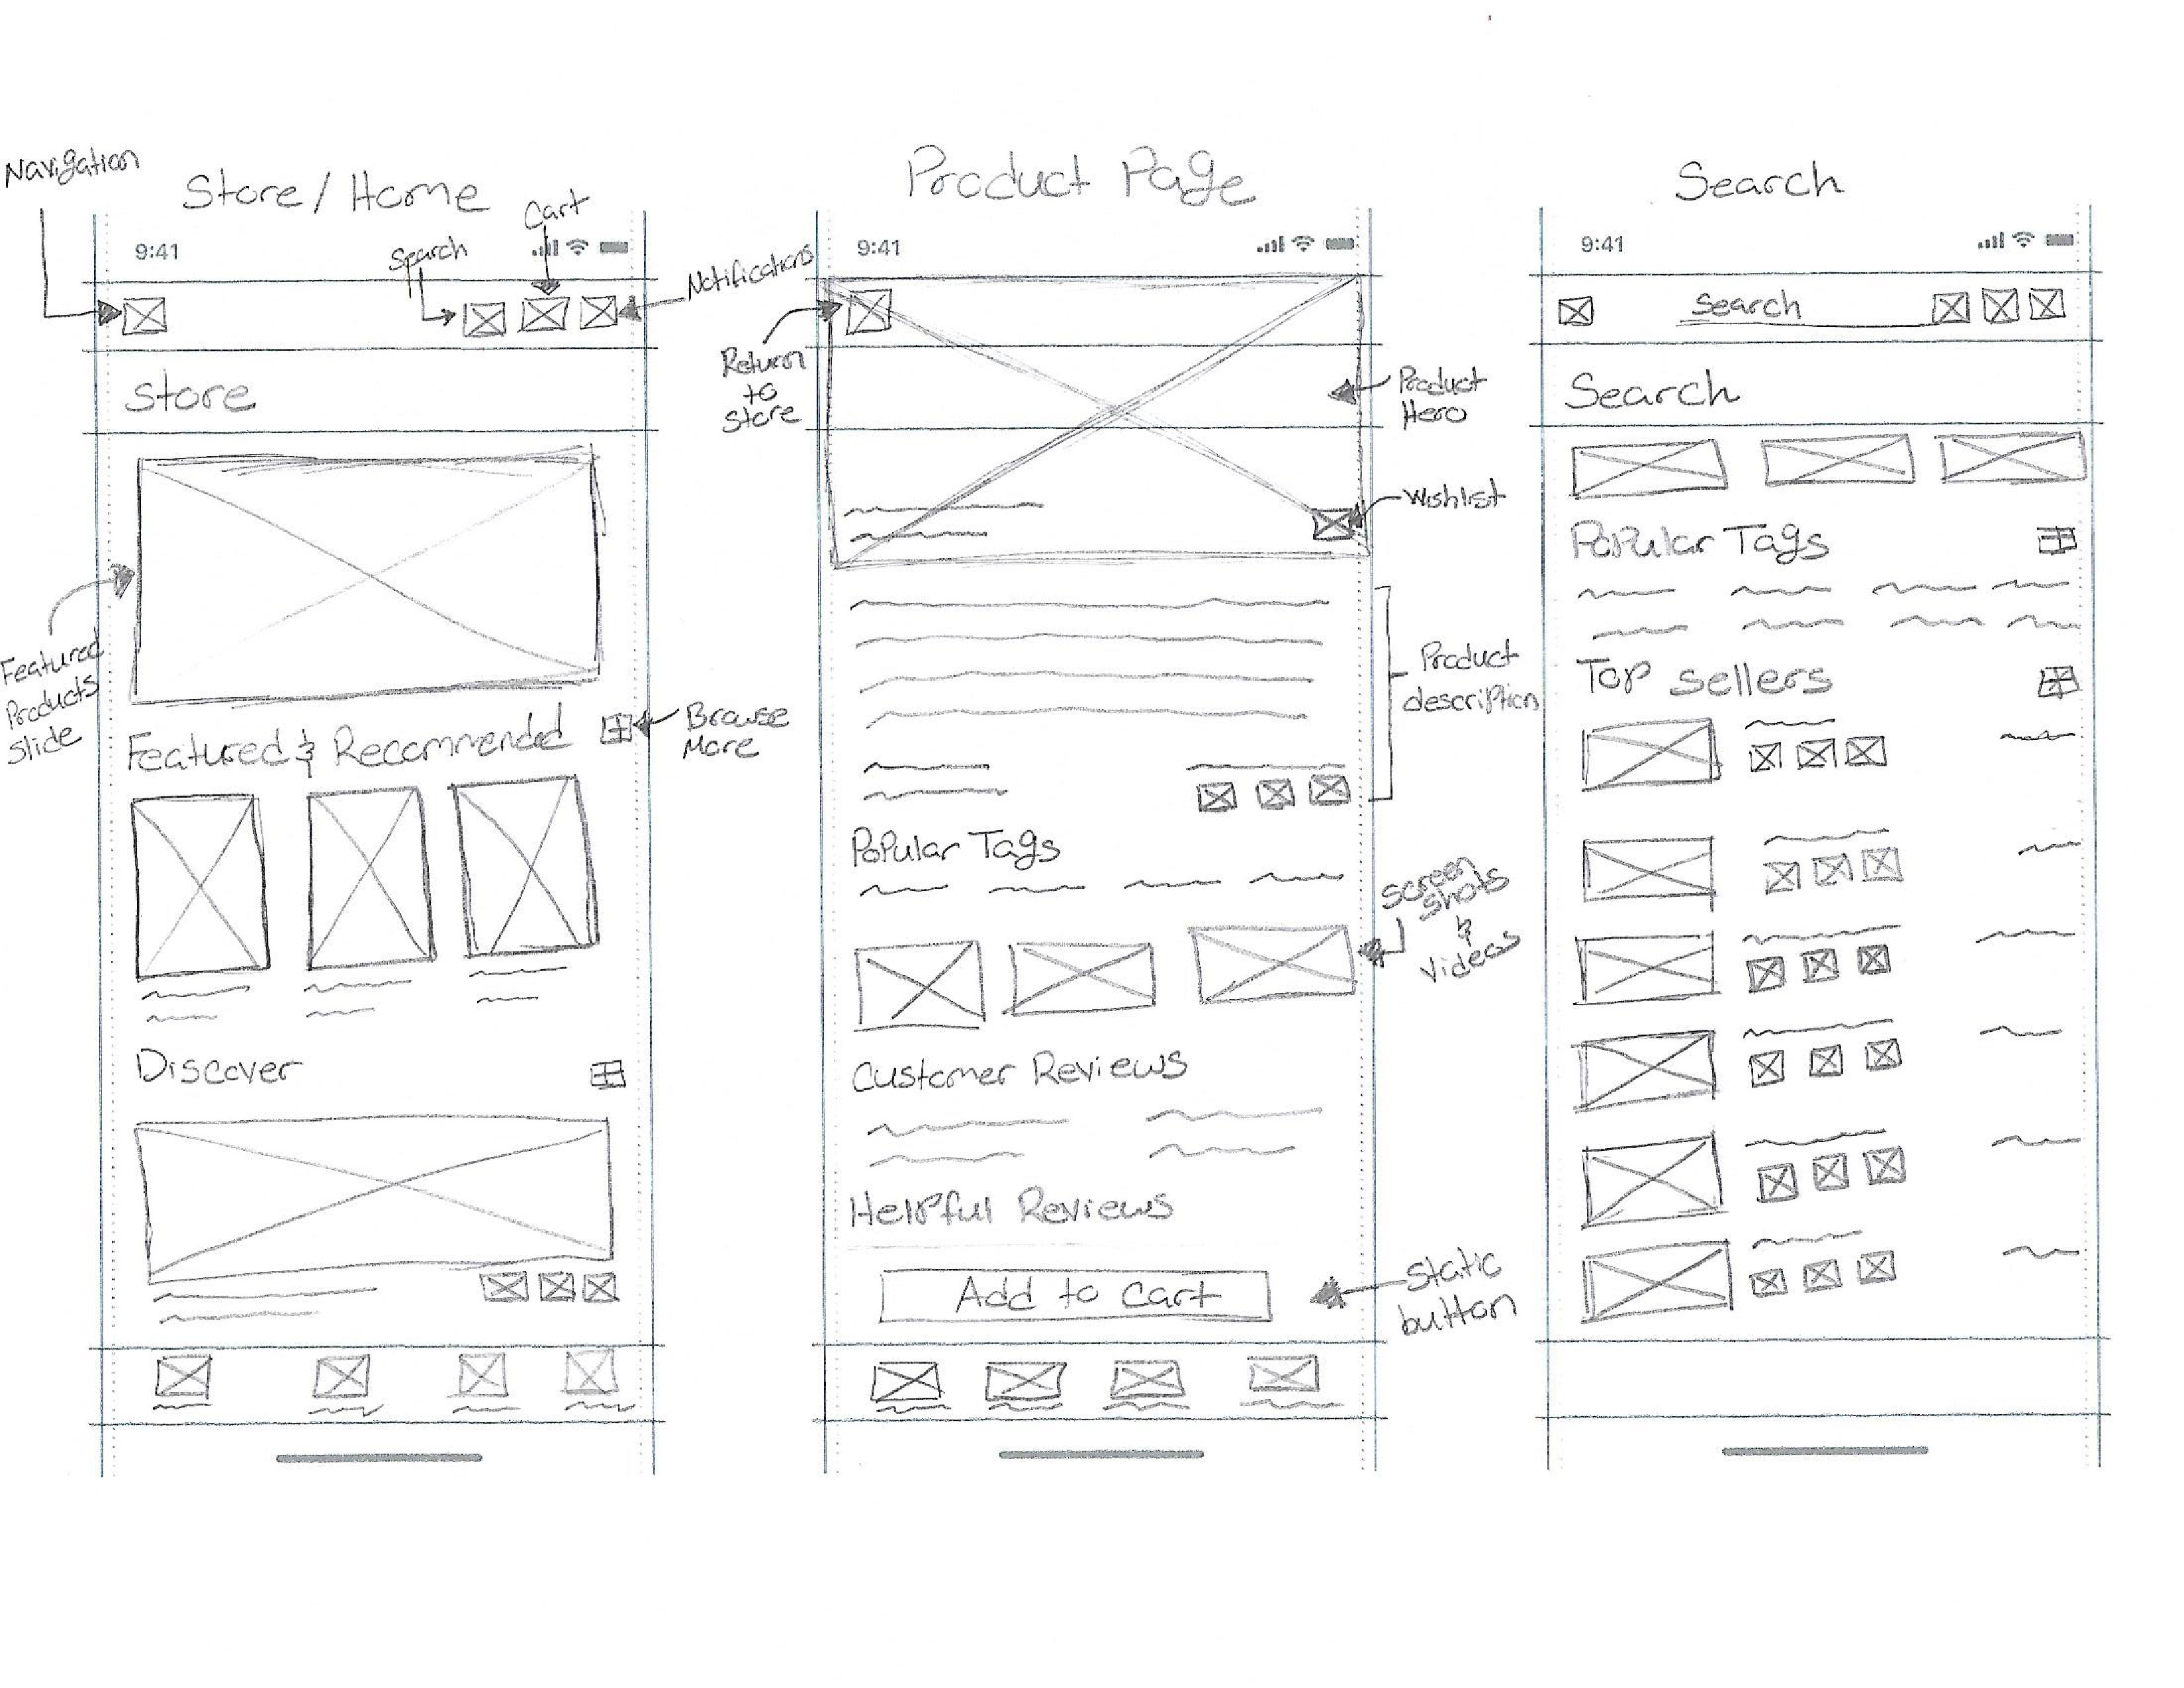 Navigation
Store / Home
Cart
Search
9:41
Notifications
Store
Featured
Products
Slide
Featured & Recommended
Browse
More
Discover
Product Page
9:41
Return
to
Store
Product
Hero
Wishlist
Product
description
Popular Tags
Screen
shots
&
Videos
Customer Reviews
Helpful Reviews
Add to Cart
Static
button
Search
9:41
Search
Search
Popular Tags
Top sellers